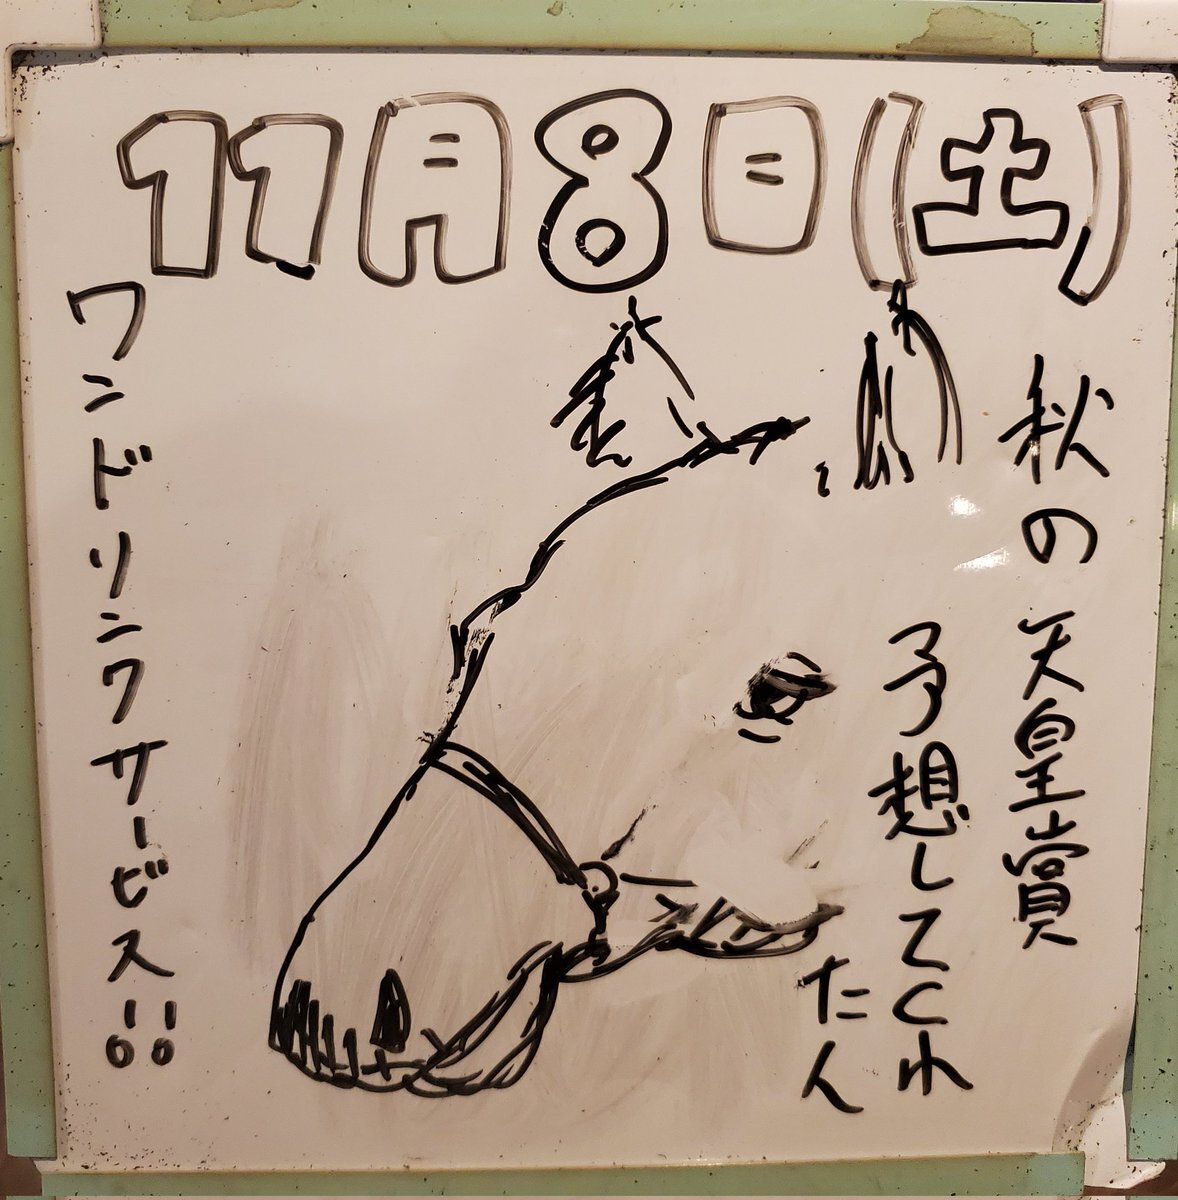 11月8日(土)
秋の天皇賞
予想してくれ
たん
ワンドリンクサービス!!